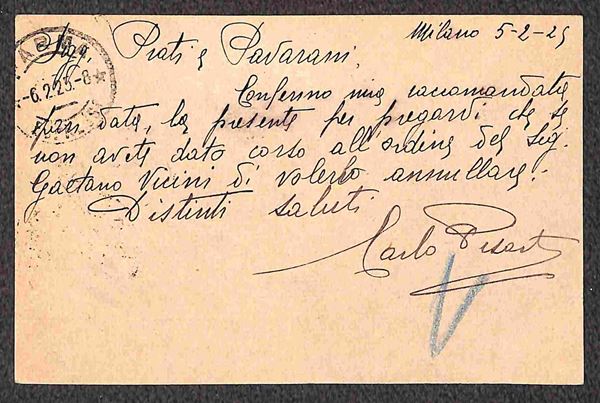 Milano 5-2-25
Prati e Pavarani,
6.2.25.-8
Confermo mia raccomandata
pari data, la presente per pregardi che se
non avete dato corso all'ordine del Sig.
Gaetano Vicini di volerlo annullare.
Distinti saluti
Carlo